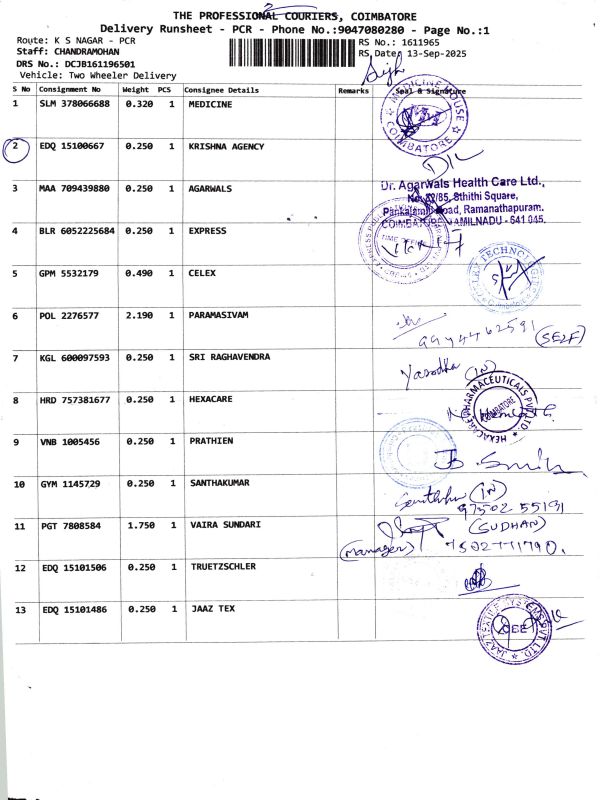 THE PROFESSIONAL COURIERS, COIMBATORE
Delivery Runsheet - PCR - Phone No.:9047080280 - Page No.:1
Route: K S NAGAR - PCR
RS No.: 1611965
Staff: CHANDRAMOHAN
RS Date: 13-Sep-2025
DRS No.: DCJB161196501
Vehicle: Two Wheeler Delivery
S No Consignment No Weight PCS Consignee Details Remarks Seal & Signature
1 SLM 378066688 0.320 1 MEDICINE
MEDICINE HOUSE COIMBATORE
2 EDQ 15100667 0.250 1 KRISHNA AGENCY
3 MAA 709439880 0.250 1 AGARWALS
Dr. Agarwals Health Care Ltd.,
No. 22/85, Sthithi Square,
Pankajamill Road, Ramanathapuram.
COIMBATORE, TAMILNADU - 641 045.
4 BLR 6052225684 0.250 1 EXPRESS
5 GPM 5532179 0.490 1 CELEX
6 POL 2276577 2.190 1 PARAMASIVAM
9994462591
(SELF)
7 KGL 600097593 0.250 1 SRI RAGHAVENDRA
Yasodha (IN)
8 HRD 757381677 0.250 1 HEXACARE
HEXACARE PHARMACEUTICALS PVT LTD. COIMBATORE
9 VNB 1005456 0.250 1 PRATHIEN
10 GYM 1145729 0.250 1 SANTHAKUMAR
(IN)
97502 55191
11 PGT 7808584 1.750 1 VAIRA SUNDARI
(SUDHAN)
(manager)
12 EDQ 15101506 0.250 1 TRUETZSCHLER
13 EDQ 15101486 0.250 1 JAAZ TEX
JAAZ TEXTILE SYSTEMS PVT. LTD.